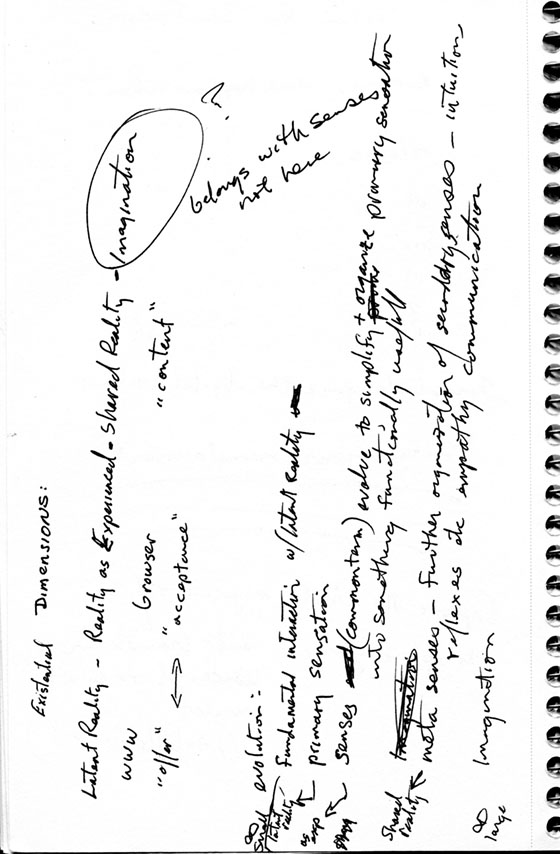 Existential Dimensions:
Latent Reality - Reality as Experienced - Shared Reality - Imagination ?
WWW browser "content"
"offer" <-> "acceptance"
belongs with senses
not here
∞ evolution:
Small
latent reality Fundamental interaction w/ latent reality
as exp primary sensation
senses (common term) evolve to simplify + organize primary sensation
into something functionally usefull
Shared reality meta senses - further organization of secondary senses - intuition,
reflexes etc empathy communication
∞ large Imagination